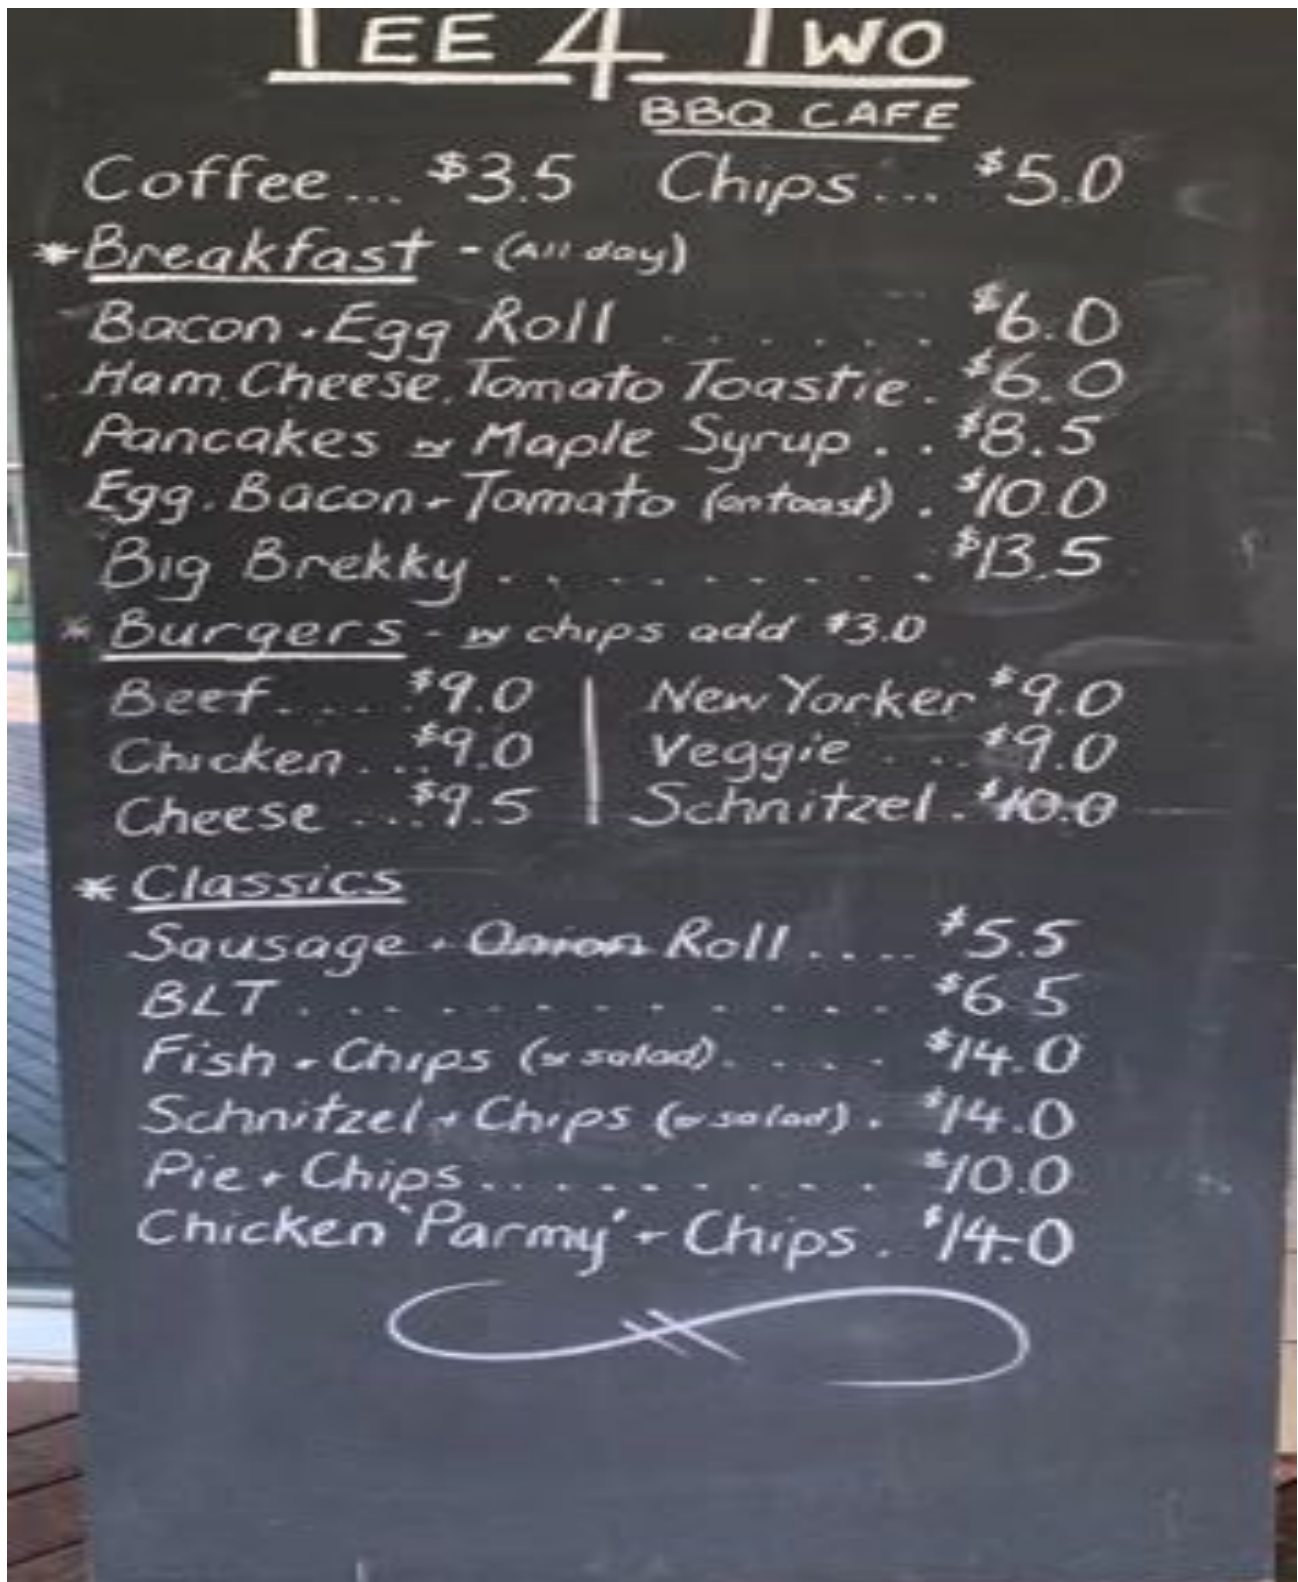 TEE 4 TWO
BBQ CAFE
Coffee... $3.5 Chips... $5.0
*Breakfast - (All day)
Bacon + Egg Roll . . . . . . $6.0
Ham. Cheese. Tomato Toastie . $6.0
Pancakes w Maple Syrup . . $8.5
Egg. Bacon + Tomato (on toast) . $10.0
Big Brekky . . . . . . . . . $13.5
* Burgers - w chips add $3.0
Beef..... $9.0 | New Yorker $9.0
Chicken.... $9.0 | Veggie .... $9.0
Cheese .... $9.5 | Schnitzel . $10.0
* Classics
Sausage + Onion Roll .... $5.5
BLT . . . . . . . . . . . $6.5
Fish + Chips (w salad) . . . . $14.0
Schnitzel + Chips (w salad) . $14.0
Pie + Chips . . . . . . . . . $10.0
Chicken 'Parmy' + Chips . $14.0